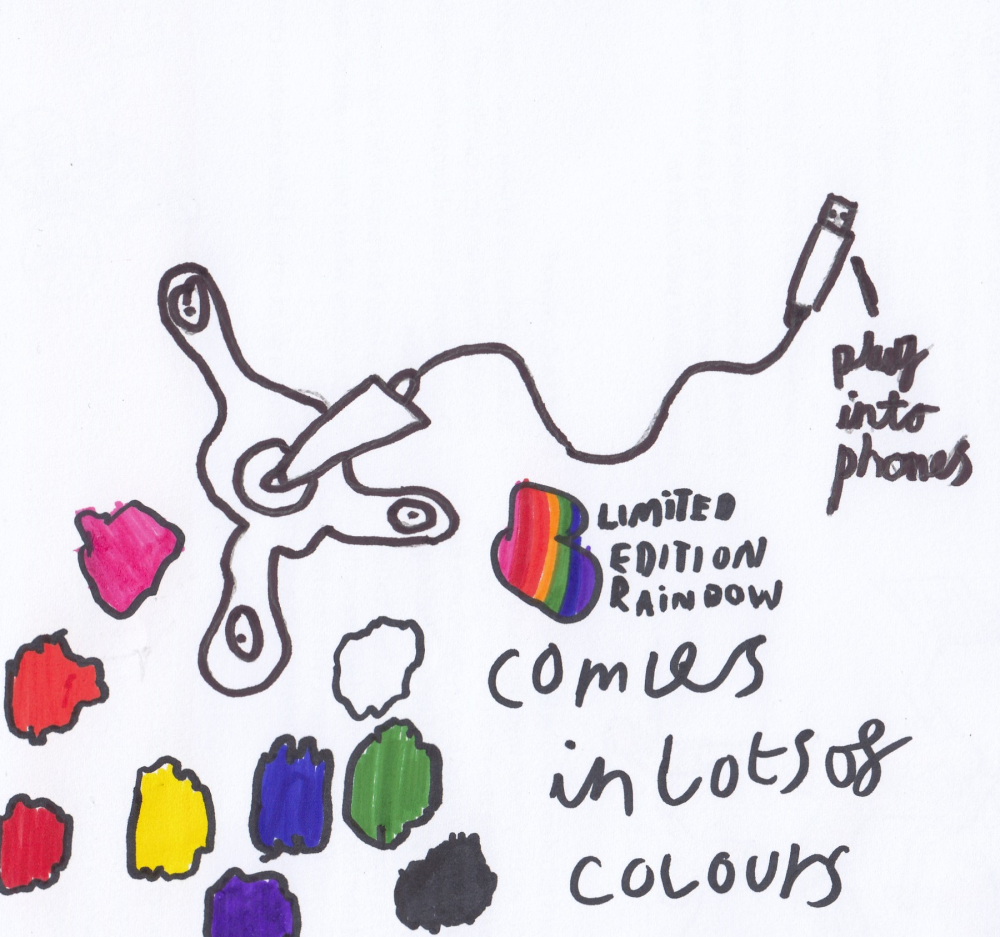 plug
into
phones
LIMITED
EDITION
RAINDOW
comes
in lots of
colours